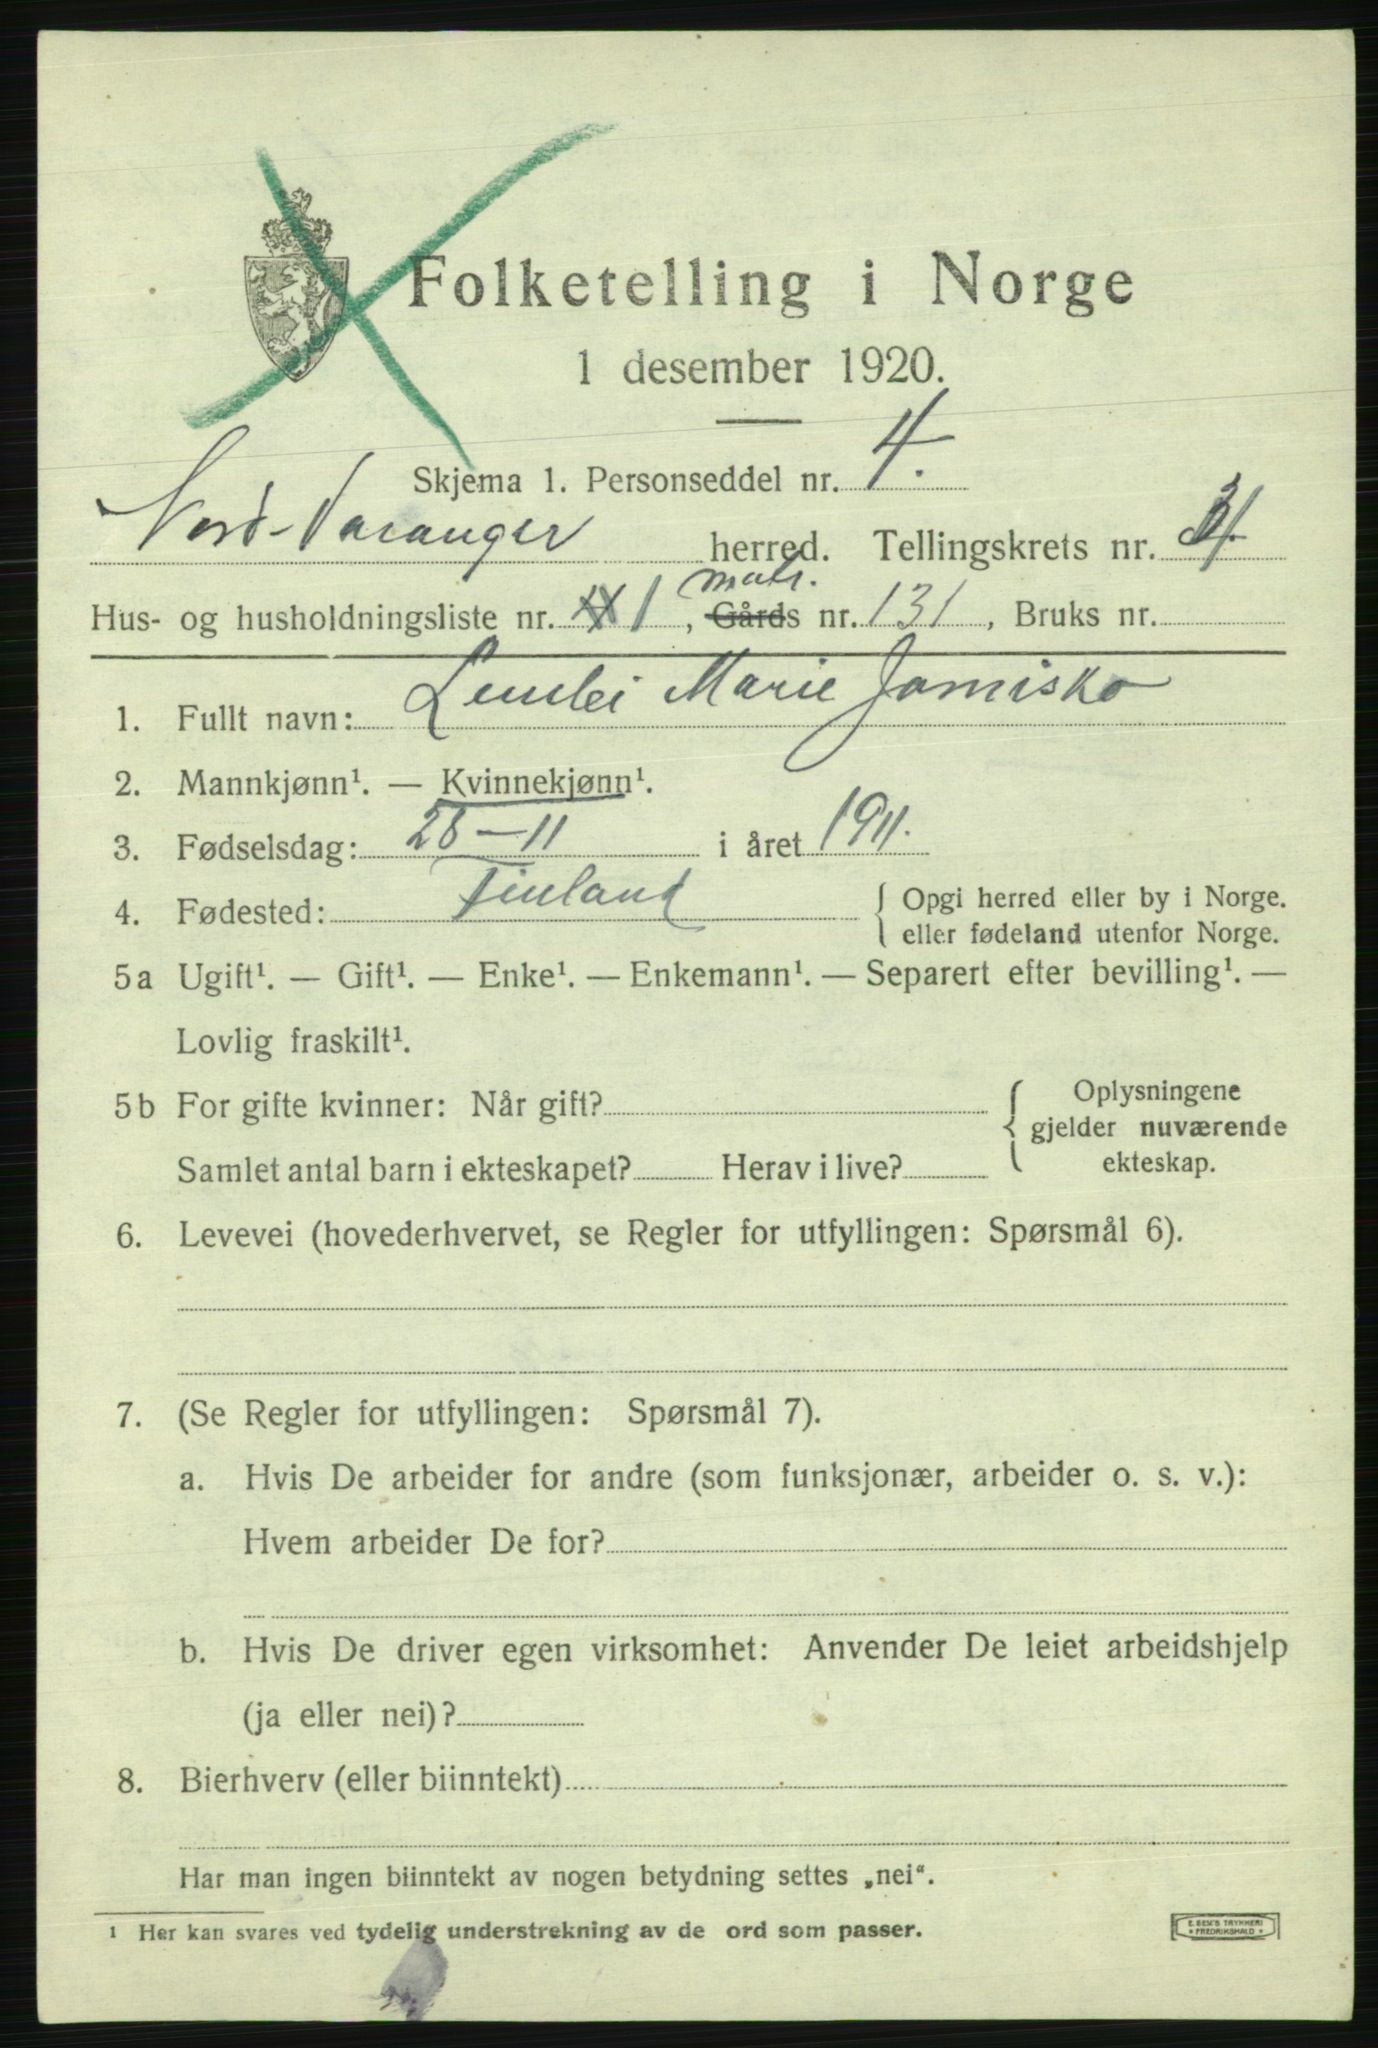 Folketelling i Norge
1 desember 1920.
Skjema 1. Personseddel nr. 4.
Nord-Varanger herred. Tellingskrets nr.
Hus- og husholdningsliste nr. 1, Gårds matr. nr. 131, Bruks nr.
1. Fullt navn: Marie Jomisko
2. Mannkjønn¹. — Kvinnekjønn¹.
3. Fødselsdag: 28-11 i året 1911.
4. Fødested: Finland { Opgi herred eller by i Norge.
eller fødeland utenfor Norge.
5a Ugift¹. — Gift¹. — Enke¹. — Enkemann¹. — Separert efter bevilling¹. —
Lovlig fraskilt¹.
5b For gifte kvinner: Når gift? { Oplysningene
gjelder nuværende
Samlet antal barn i ekteskapet? Herav i live? ekteskap.
6. Levevei (hovederhvervet, se Regler for utfyllingen: Spørsmål 6).
7. (Se Regler for utfyllingen: Spørsmål 7).
a. Hvis De arbeider for andre (som funksjonær, arbeider o. s. v.):
Hvem arbeider De for?
b. Hvis De driver egen virksomhet: Anvender De leiet arbeidshjelp
(ja eller nei)?
8. Bierhverv (eller biinntekt)
Har man ingen biinntekt av nogen betydning settes „nei“.
¹ Her kan svares ved tydelig understrekning av de ord som passer.
E. SEM'S TRYKKERI
FREDRIKSHALD